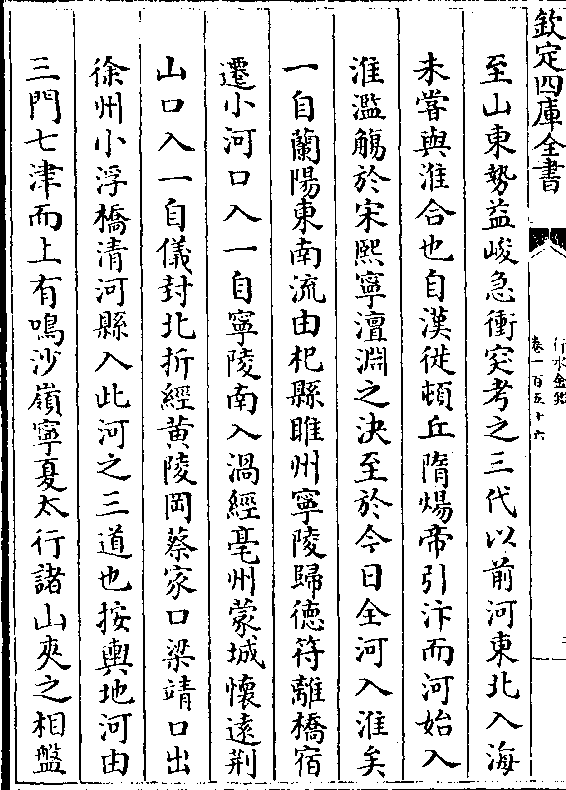 欽定四庫全書
行水金鑑
卷一百五十六
至山東勢益峻急衝突考之三代以前河東北入海
未嘗與淮合也自漢徙頓丘隋煬帝引汴而河始入
淮濫觴於宋熙寧澶淵之決至於今日全河入淮矣
一自蘭陽東南流由杞縣睢州寧陵歸德符離橋宿
遷小河口入一自寧陵南入渦經亳州蒙城懷遠荆
山口入一自儀封北折經黄陵岡蔡家口梁靖口出
徐州小浮橋清河縣入此河之三道也按輿地河由
三門七津而上有鳴沙嶺寧夏太行諸山夾之相盤